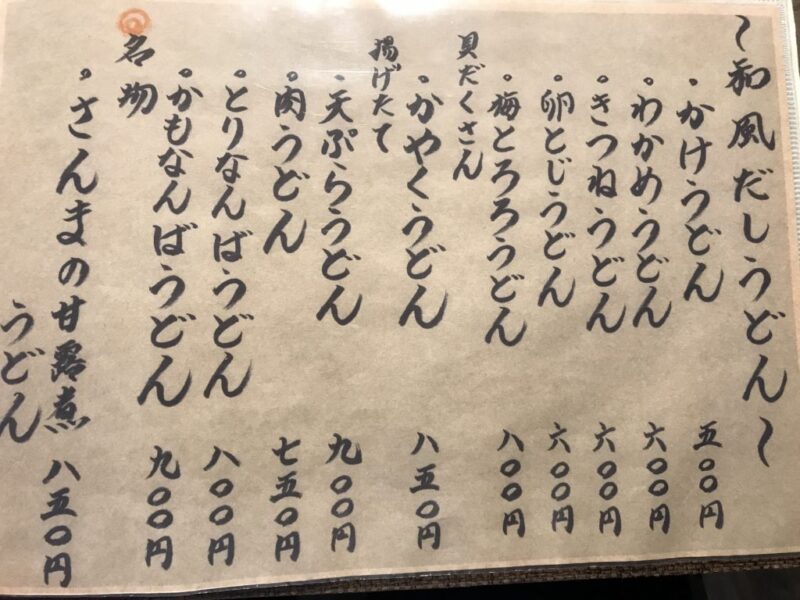 ～和風だしうどん～
・かけうどん 五〇〇円
・わかめうどん 六〇〇円
・きつねうどん 六〇〇円
・卵とじうどん 六〇〇円
・梅とろろうどん 八〇〇円
具だくさん
・かやくうどん 八五〇円
揚げたて
・天ぷらうどん 九〇〇円
・肉うどん 七五〇円
・とりなんばうどん 八〇〇円
・かもなんばうどん 九〇〇円
名物
・さんまの甘露煮
うどん 八五〇円